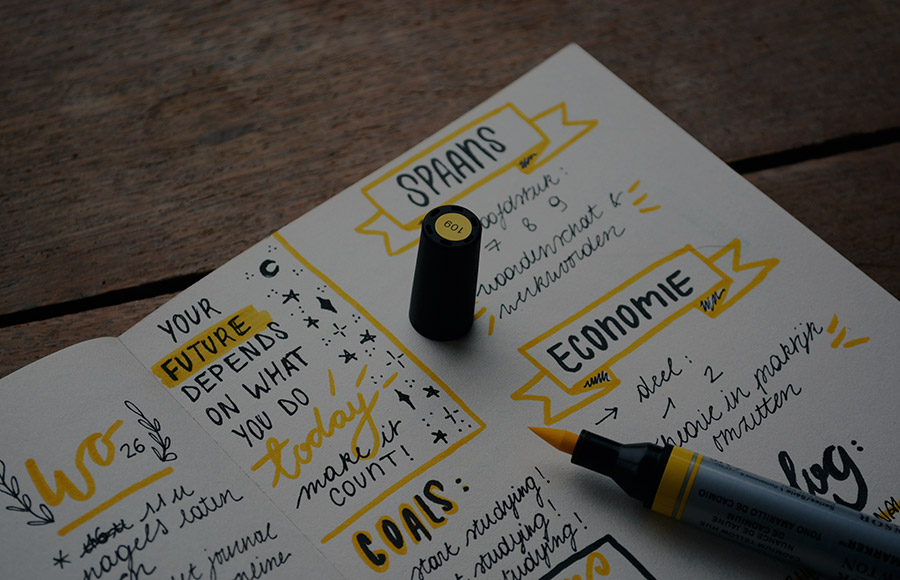 Wo
26
11u
* nagels laten
journal
YOUR
FUTURE
DEPENDS
ON WHAT
YOU DO
today
make it
COUNT!
GOALS:
start studying!
studying!
studying!
SPAANS
hoofdstuk:
7 8 9
woordenschat &
werkwoorden
ECONOMIE
→ deel:
1 2
theorie in praktijk
omzetten
log:
109